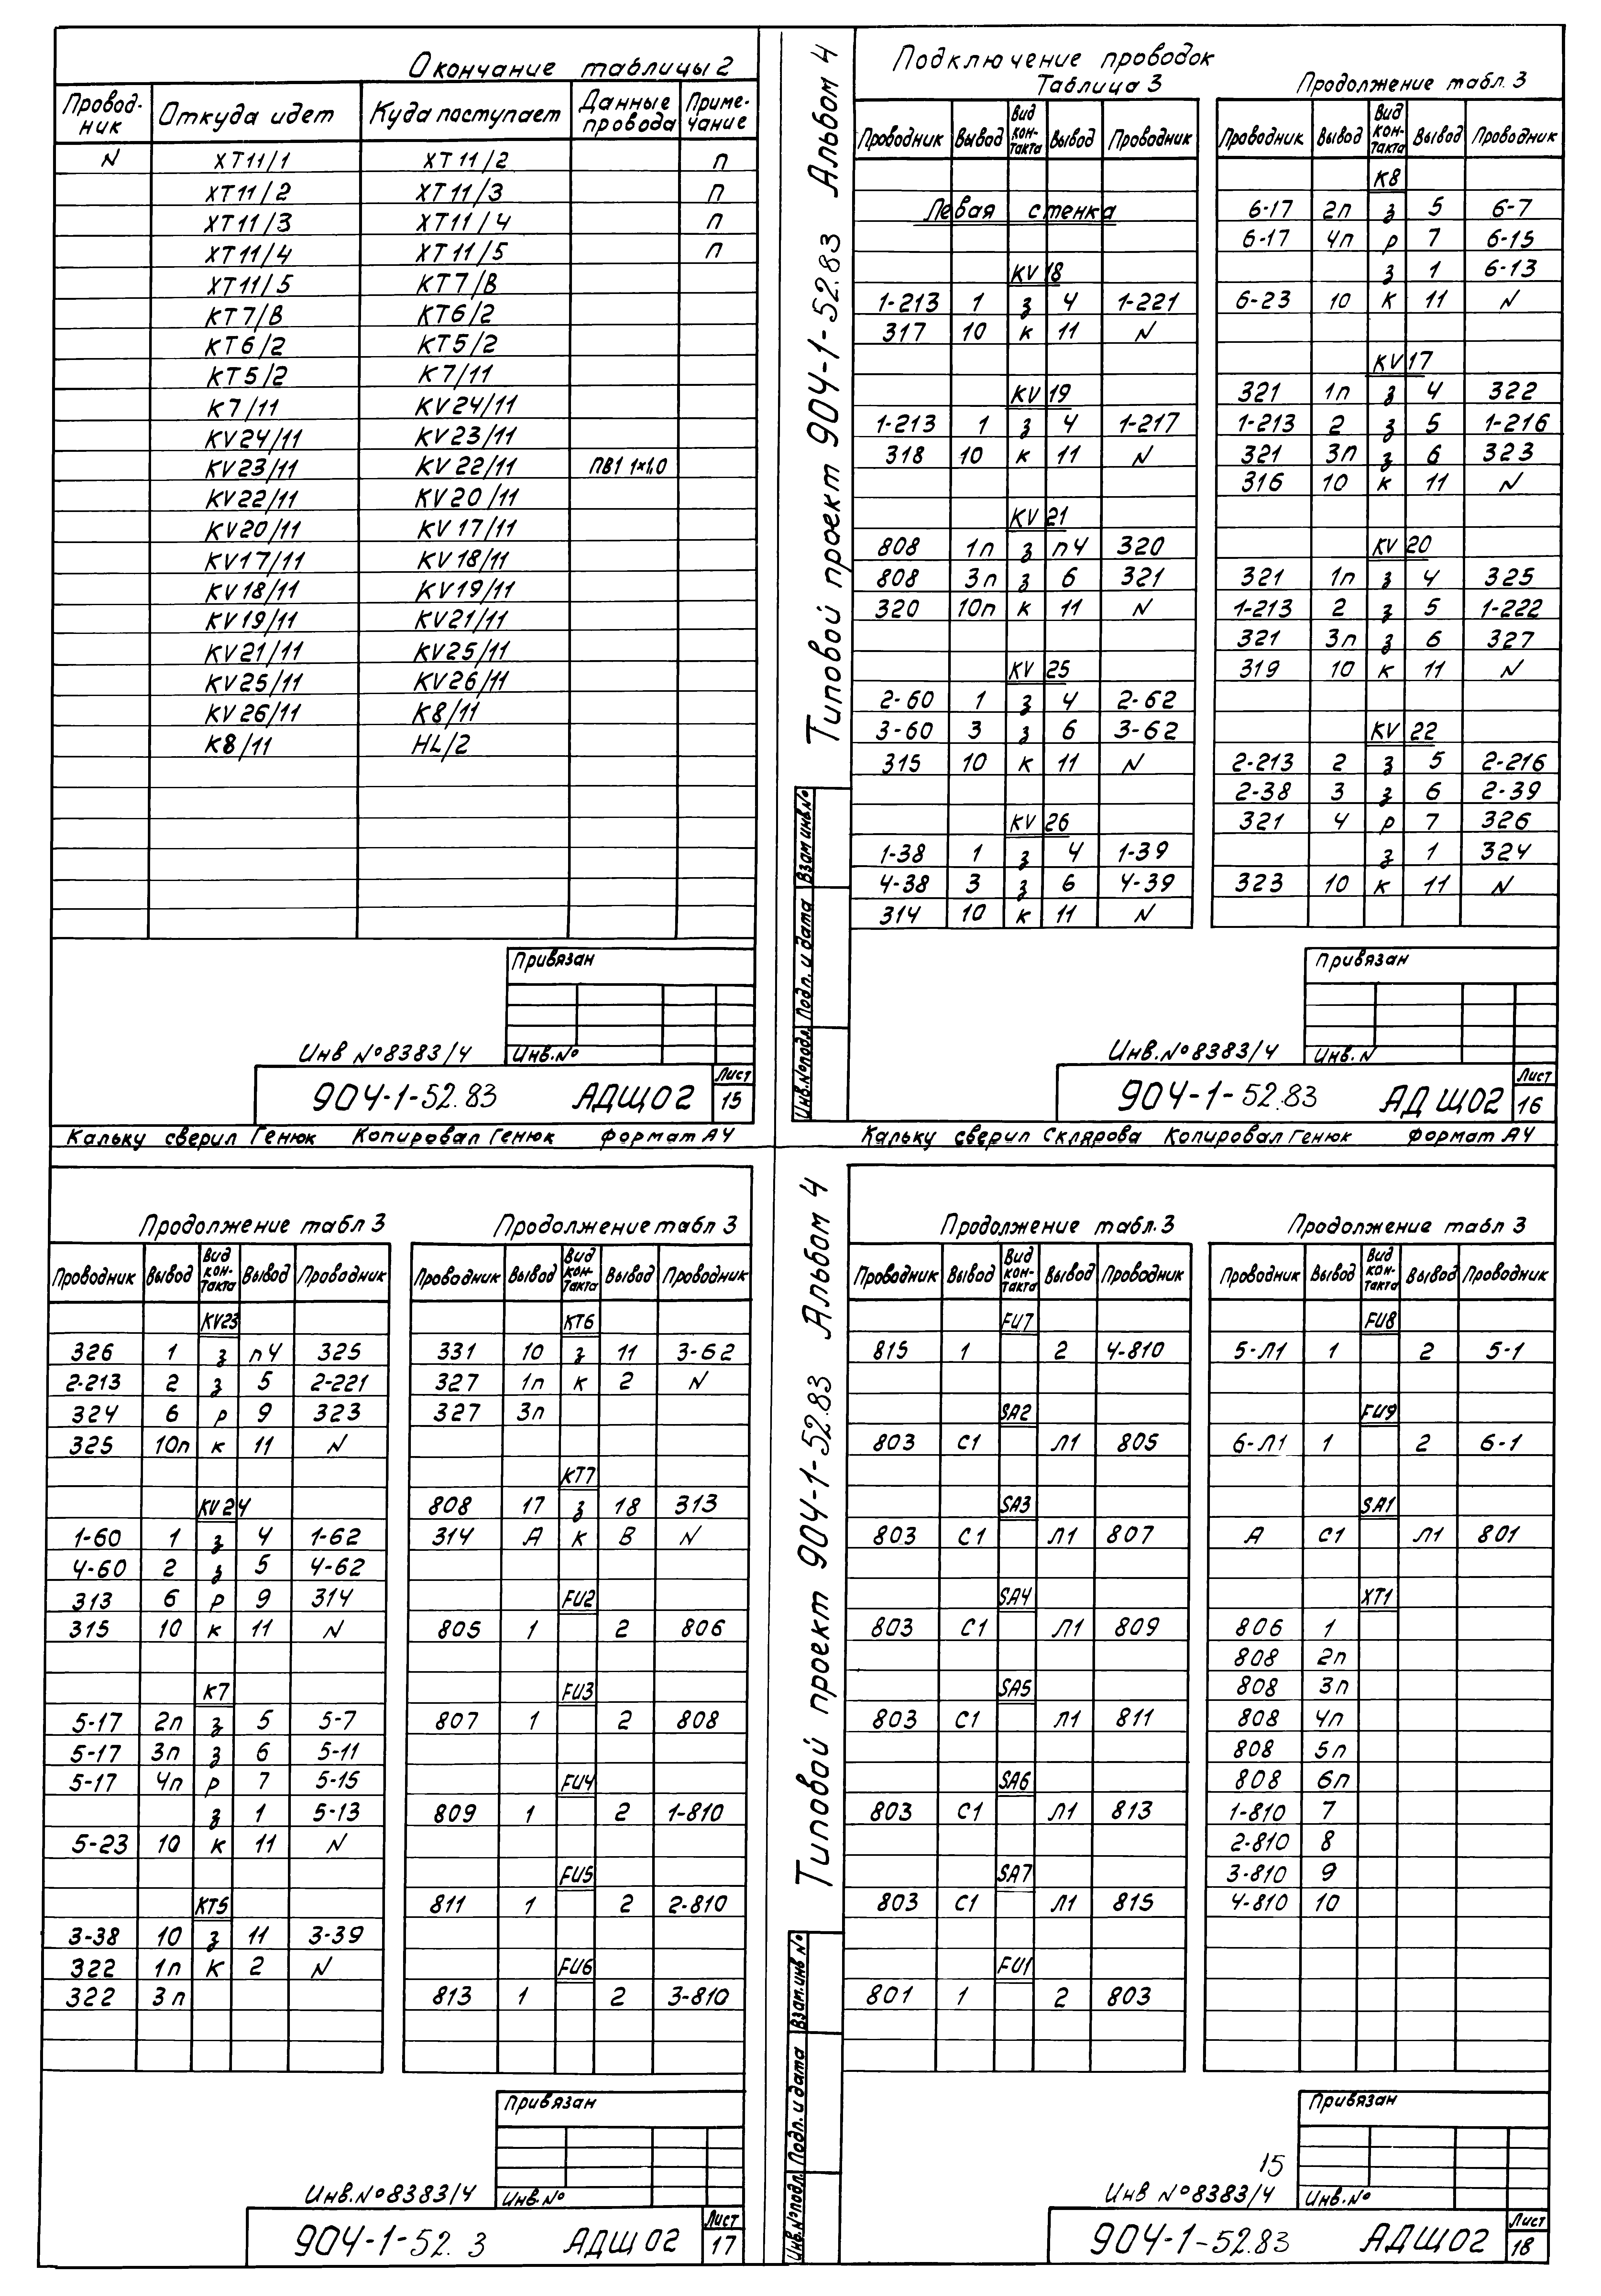 Окончание таблицы 2
Провод-ник Откуда идет Куда поступает Данные провода Приме-чание
N XT11/1 XT11/2 п
XT11/2 XT11/3 п
XT11/3 XT11/4 п
XT11/4 XT11/5 п
XT11/5 KT7/B
KT7/B KT6/2
KT6/2 KT5/2
KT5/2 K7/11
K7/11 KV24/11
KV24/11 KV23/11
KV23/11 KV22/11 ПВ1 1×1,0
KV22/11 KV20/11
KV20/11 KV17/11
KV17/11 KV18/11
KV18/11 KV19/11
KV19/11 KV21/11
KV21/11 KV25/11
KV25/11 KV26/11
KV26/11 K8/11
K8/11 HL/2
Привязан
Инв №8383/4 Инв.№
904-1-52.83 АДЩ02 Лист 15
Кальку сверил Генюк Копировал Генюк формат А4
Типовой проект 904-1-52.83 Альбом 4
Подключение проводок
Таблица 3
Проводник Вывод Вид кон-такта Вывод Проводник
Левая стенка
KV18
1-213 1 з 4 1-221
317 10 к 11 N
KV19
1-213 1 з 4 1-217
318 10 к 11 N
KV21
808 1п з п4 320
808 3п з 6 321
320 10п к 11 N
KV25
2-60 1 з 4 2-62
3-60 3 з 6 3-62
315 10 к 11 N
KV26
1-38 1 з 4 1-39
4-38 3 з 6 4-39
314 10 к 11 N
Продолжение табл. 3
Проводник Вывод Вид кон-такта Вывод Проводник
K8
6-17 2п з 5 6-7
6-17 4п р 7 6-15
з 1 6-13
6-23 10 к 11 N
KV17
321 1п з 4 322
1-213 2 з 5 1-216
321 3п з 6 323
316 10 к 11 N
KV20
321 1п з 4 325
1-213 2 з 5 1-222
321 3п з 6 327
319 10 к 11 N
KV22
2-213 2 з 5 2-216
2-38 3 з 6 2-39
321 4 р 7 326
з 1 324
323 10 к 11 N
Взам инв.№
Подп. и дата
Инв.№подл.
Привязан
Инв.№8383/4 Инв. N
904-1-52.83 АДЩ02 Лист 16
Кальку сверил Склярова Копировал Генюк формат А4
Продолжение табл 3
Проводник Вывод Вид кон-такта Вывод Проводник
KV23
326 1 з п4 325
2-213 2 з 5 2-221
324 6 р 9 323
325 10п к 11 N
KV24
1-60 1 з 4 1-62
4-60 2 з 5 4-62
313 6 р 9 314
315 10 к 11 N
K7
5-17 2п з 5 5-7
5-17 3п з 6 5-11
5-17 4п р 7 5-15
з 1 5-13
5-23 10 к 11 N
KT5
3-38 10 з 11 3-39
322 1п к 2 N
322 3п
Продолжение табл 3
Проводник Вывод Вид кон-такта Вывод Проводник
KT6
331 10 з 11 3-62
327 1п к 2 N
327 3п
KT7
808 17 з 18 313
314 А к В N
FU2
805 1 2 806
FU3
807 1 2 808
FU4
809 1 2 1-810
FU5
811 1 2 2-810
FU6
813 1 2 3-810
Привязан
Инв.№8383/4 Инв.№
904-1-52. 3 АДЩ02 Лист 17
Типовой проект 904-1-52.83 Альбом 4
Продолжение табл. 3
Проводник Вывод Вид кон-такта Вывод Проводник
FU7
815 1 2 4-810
SA2
803 С1 Л1 805
SA3
803 С1 Л1 807
SA4
803 С1 Л1 809
SA5
803 С1 Л1 811
SA6
803 С1 Л1 813
SA7
803 С1 Л1 815
FU1
801 1 2 803
Продолжение табл 3
Проводник Вывод Вид кон-такта Вывод Проводник
FU8
5-Л1 1 2 5-1
FU9
6-Л1 1 2 6-1
SA1
А С1 Л1 801
XT1
806 1
808 2п
808 3п
808 4п
808 5п
808 6п
1-810 7
2-810 8
3-810 9
4-810 10
Взам.инв №
Подп. и дата
Инв.№подл.
Привязан
15
Инв №8383/4 Инв.№
904-1-52.83 АДЩ02 Лист 18